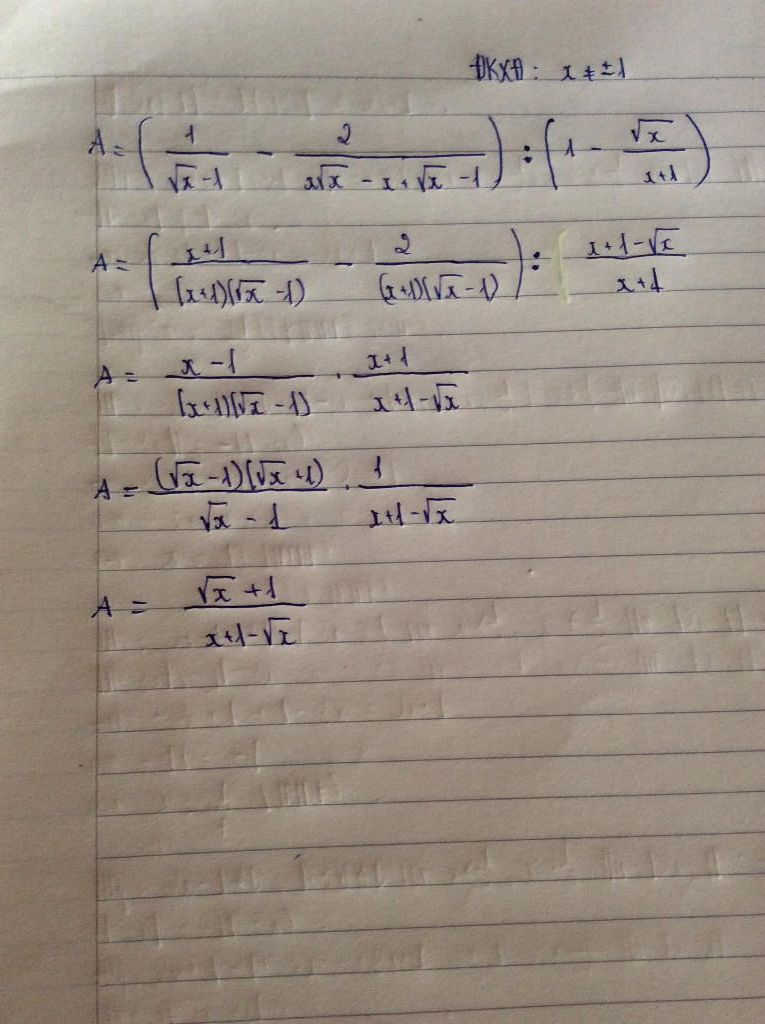 ĐKXĐ: x ≠ ±1
A = ( 1/(√x - 1) - 2/(x√x - x + √x - 1) ) : ( 1 - √x/(x+1) )
A = ( (x+1)/((x+1)(√x - 1)) - 2/((x+1)(√x - 1)) ) : (x+1-√x)/(x+1)
A = (x - 1)/((x+1)(√x - 1)) . (x+1)/(x+1-√x)
A = ((√x - 1)(√x + 1))/(√x - 1) . 1/(x+1-√x)
A = (√x + 1)/(x+1-√x)